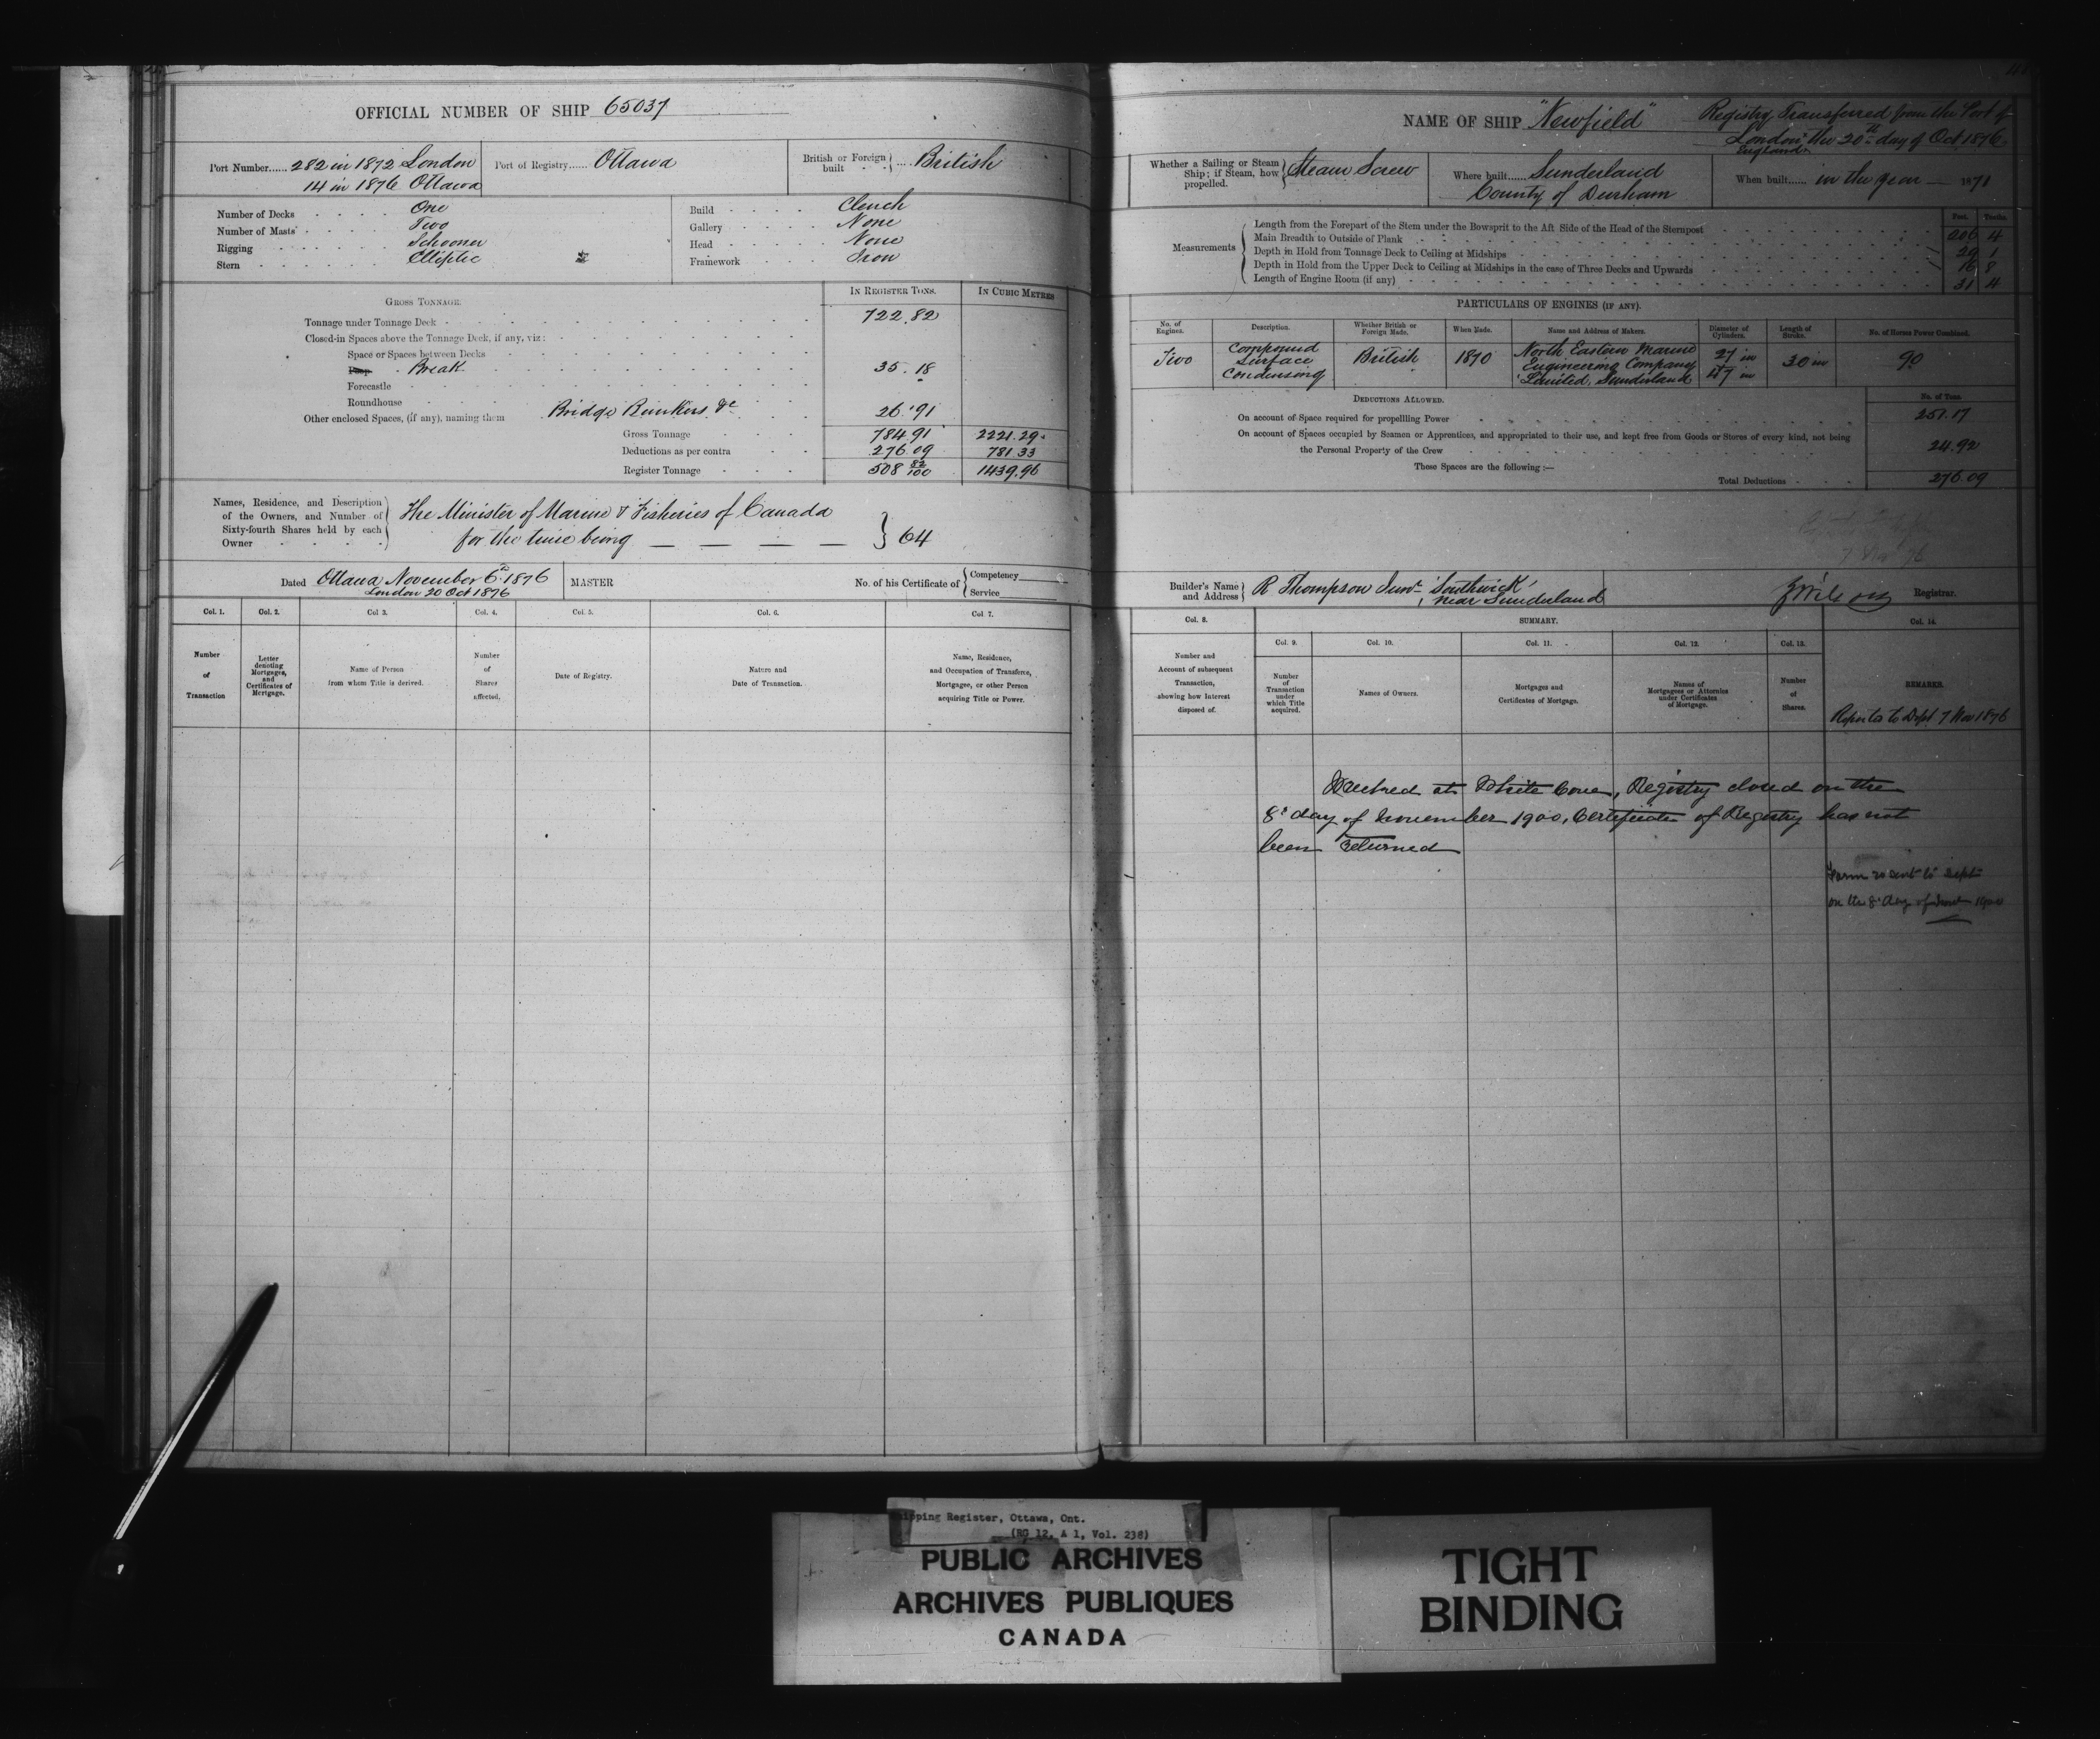 OFFICIAL NUMBER OF SHIP 65037
Port Number...... 282 in 1872 London
14 in 1876 Ottawa
Port of Registry...... Ottawa
British or Foreign built .... British
Number of Decks One
Number of Masts Two
Rigging Schooner
Stern Elliptic
Build Clench
Gallery None
Head None
Framework Iron
GROSS TONNAGE.
IN REGISTER TONS.
IN CUBIC METRES
Tonnage under Tonnage Deck 722.82
Closed-in Spaces above the Tonnage Deck, if any, viz:
Space or Spaces between Decks
Poop Break 35.18
Forecastle
Roundhouse
Other enclosed Spaces, (if any), naming them Bridge Bunkers &c 26.91
Gross Tonnage 784.91 2221.29
Deductions as per contra 276.09 781.33
Register Tonnage 508 82/100 1439.96
Names, Residence, and Description of the Owners, and Number of Sixty-fourth Shares held by each Owner
The Minister of Marine & Fisheries of Canada
for the time being } 64
Dated Ottawa November 6th 1876
London 20 Oct 1876
MASTER
No. of his Certificate of { Competency
Service
Col. 1.
Col. 2.
Col 3.
Col. 4.
Col. 5.
Col. 6.
Col 7.
Number of Transaction
Letter denoting Mortgages, and Certificates of Mortgage.
Name of Person from whom Title is derived.
Number of Shares affected.
Date of Registry.
Nature and Date of Transaction.
Name, Residence, and Occupation of Transferee, Mortgagee, or other Person acquiring Title or Power.
NAME OF SHIP "Newfield"
Registry Transferred from the Port of
London the 20th day of Oct 1876
England
Whether a Sailing or Steam Ship; if Steam, how propelled. Steam Screw
Where built...... Sunderland
County of Durham
When built...... in the year 1871
Measurements
Feet. Tenths.
Length from the Forepart of the Stem under the Bowsprit to the Aft Side of the Head of the Sternpost 206 4
Main Breadth to Outside of Plank 29 1
Depth in Hold from Tonnage Deck to Ceiling at Midships 16 8
Depth in Hold from the Upper Deck to Ceiling at Midships in the case of Three Decks and Upwards
Length of Engine Room (if any) 31 4
PARTICULARS OF ENGINES (IF ANY).
No. of Engines.
Description.
Whether British or Foreign Made.
When Made.
Name and Address of Makers.
Diameter of Cylinders.
Length of Stroke.
No. of Horses Power Combined.
Two
Compound Surface Condensing
British
1870
North Eastern Marine Engineering Company Limited, Sunderland
27 in
47 in
30 in
90
DEDUCTIONS ALLOWED.
No. of Tons.
On account of Space required for propelling Power 251.17
On account of Spaces occupied by Seamen or Apprentices, and appropriated to their use, and kept free from Goods or Stores of every kind, not being
the Personal Property of the Crew 24.92
These Spaces are the following:—
Total Deductions 276.09
Builder's Name and Address } R Thompson Junr Southwick
near Sunderland
Registrar.
Col. 8.
SUMMARY.
Col. 14.
Col. 9.
Col. 10.
Col. 11.
Col. 12.
Col. 13.
Number and Account of subsequent Transaction, showing how Interest disposed of.
Number of Transaction under which Title acquired.
Names of Owners.
Mortgages and Certificates of Mortgage.
Names of Mortgagees or Attornies under Certificates of Mortgage.
Number of Shares.
REMARKS.
Reported to Dept 7 Nov 1876
Wrecked at White Cove, Registry closed on the
8th day of November 1900, Certificate of Registry has not
been returned
Form 20 sent to Dept
on the 8th day of 1900
Shipping Register, Ottawa, Ont.
(RG 12, A 1, Vol. 238)
PUBLIC ARCHIVES
ARCHIVES PUBLIQUES
CANADA
TIGHT
BINDING